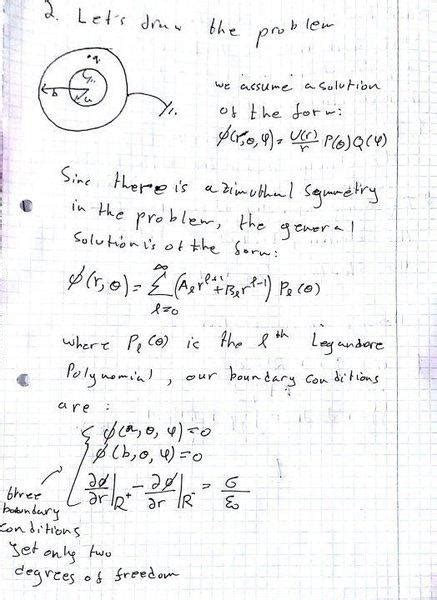 2. Let's draw the problem
q
b
a
we assume a solution
of the form:
ϕ(r,θ,φ) = U(r)/r P(θ)Q(φ)
Sinc there is azimuthal symmetry
in the problem, the general
solution is of the form:
ϕ(r,θ) = ∑_{l=0}^{∞} (A_l r^{l+1} + B_l r^{l-1}) P_l(θ)
where P_l(θ) is the l^th Legandore
Polynomial, our boundary conditions
are:
ϕ(a,θ,φ)=0
ϕ(b,θ,φ)=0
∂ϕ/∂r|_{R^+} - ∂ϕ/∂r|_{R^-} = σ/ε_0
three
boundary
conditions
yet only two
degrees of freedom